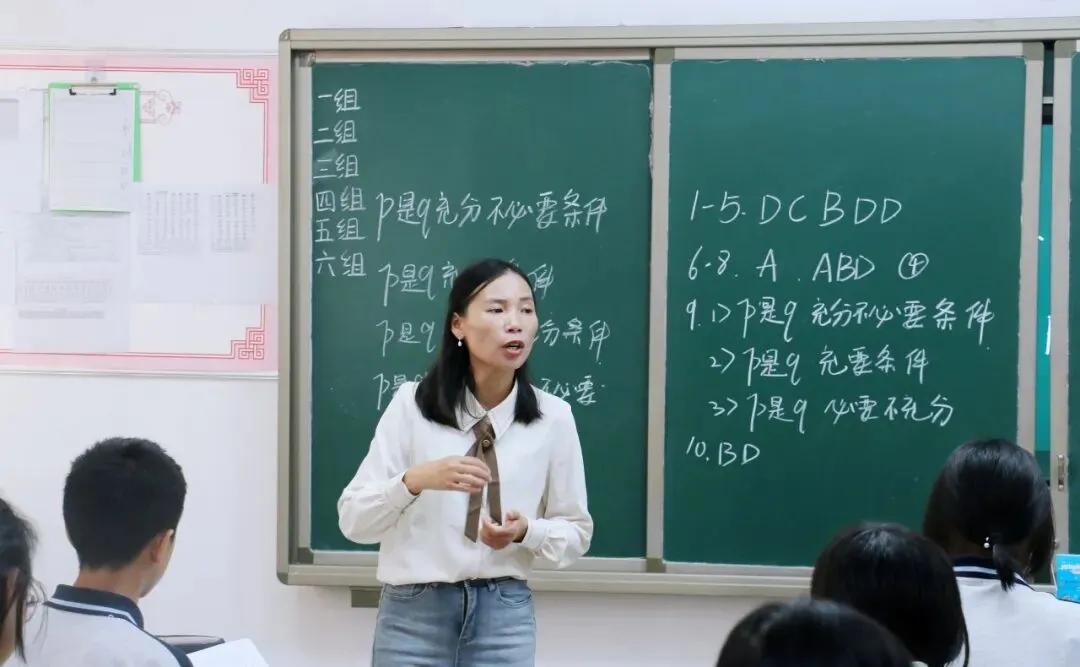 一组
二组
三组
四组
五组
六组
p是q充分不必要条件
p是q充 件
p是q 分条件
p是 不必要
1-5. D C B D D
6-8. A . ABD ④
9. 1> p是q 充分不必要条件
2> p是q 充要条件
3> p是q 必要不充分
10. BD